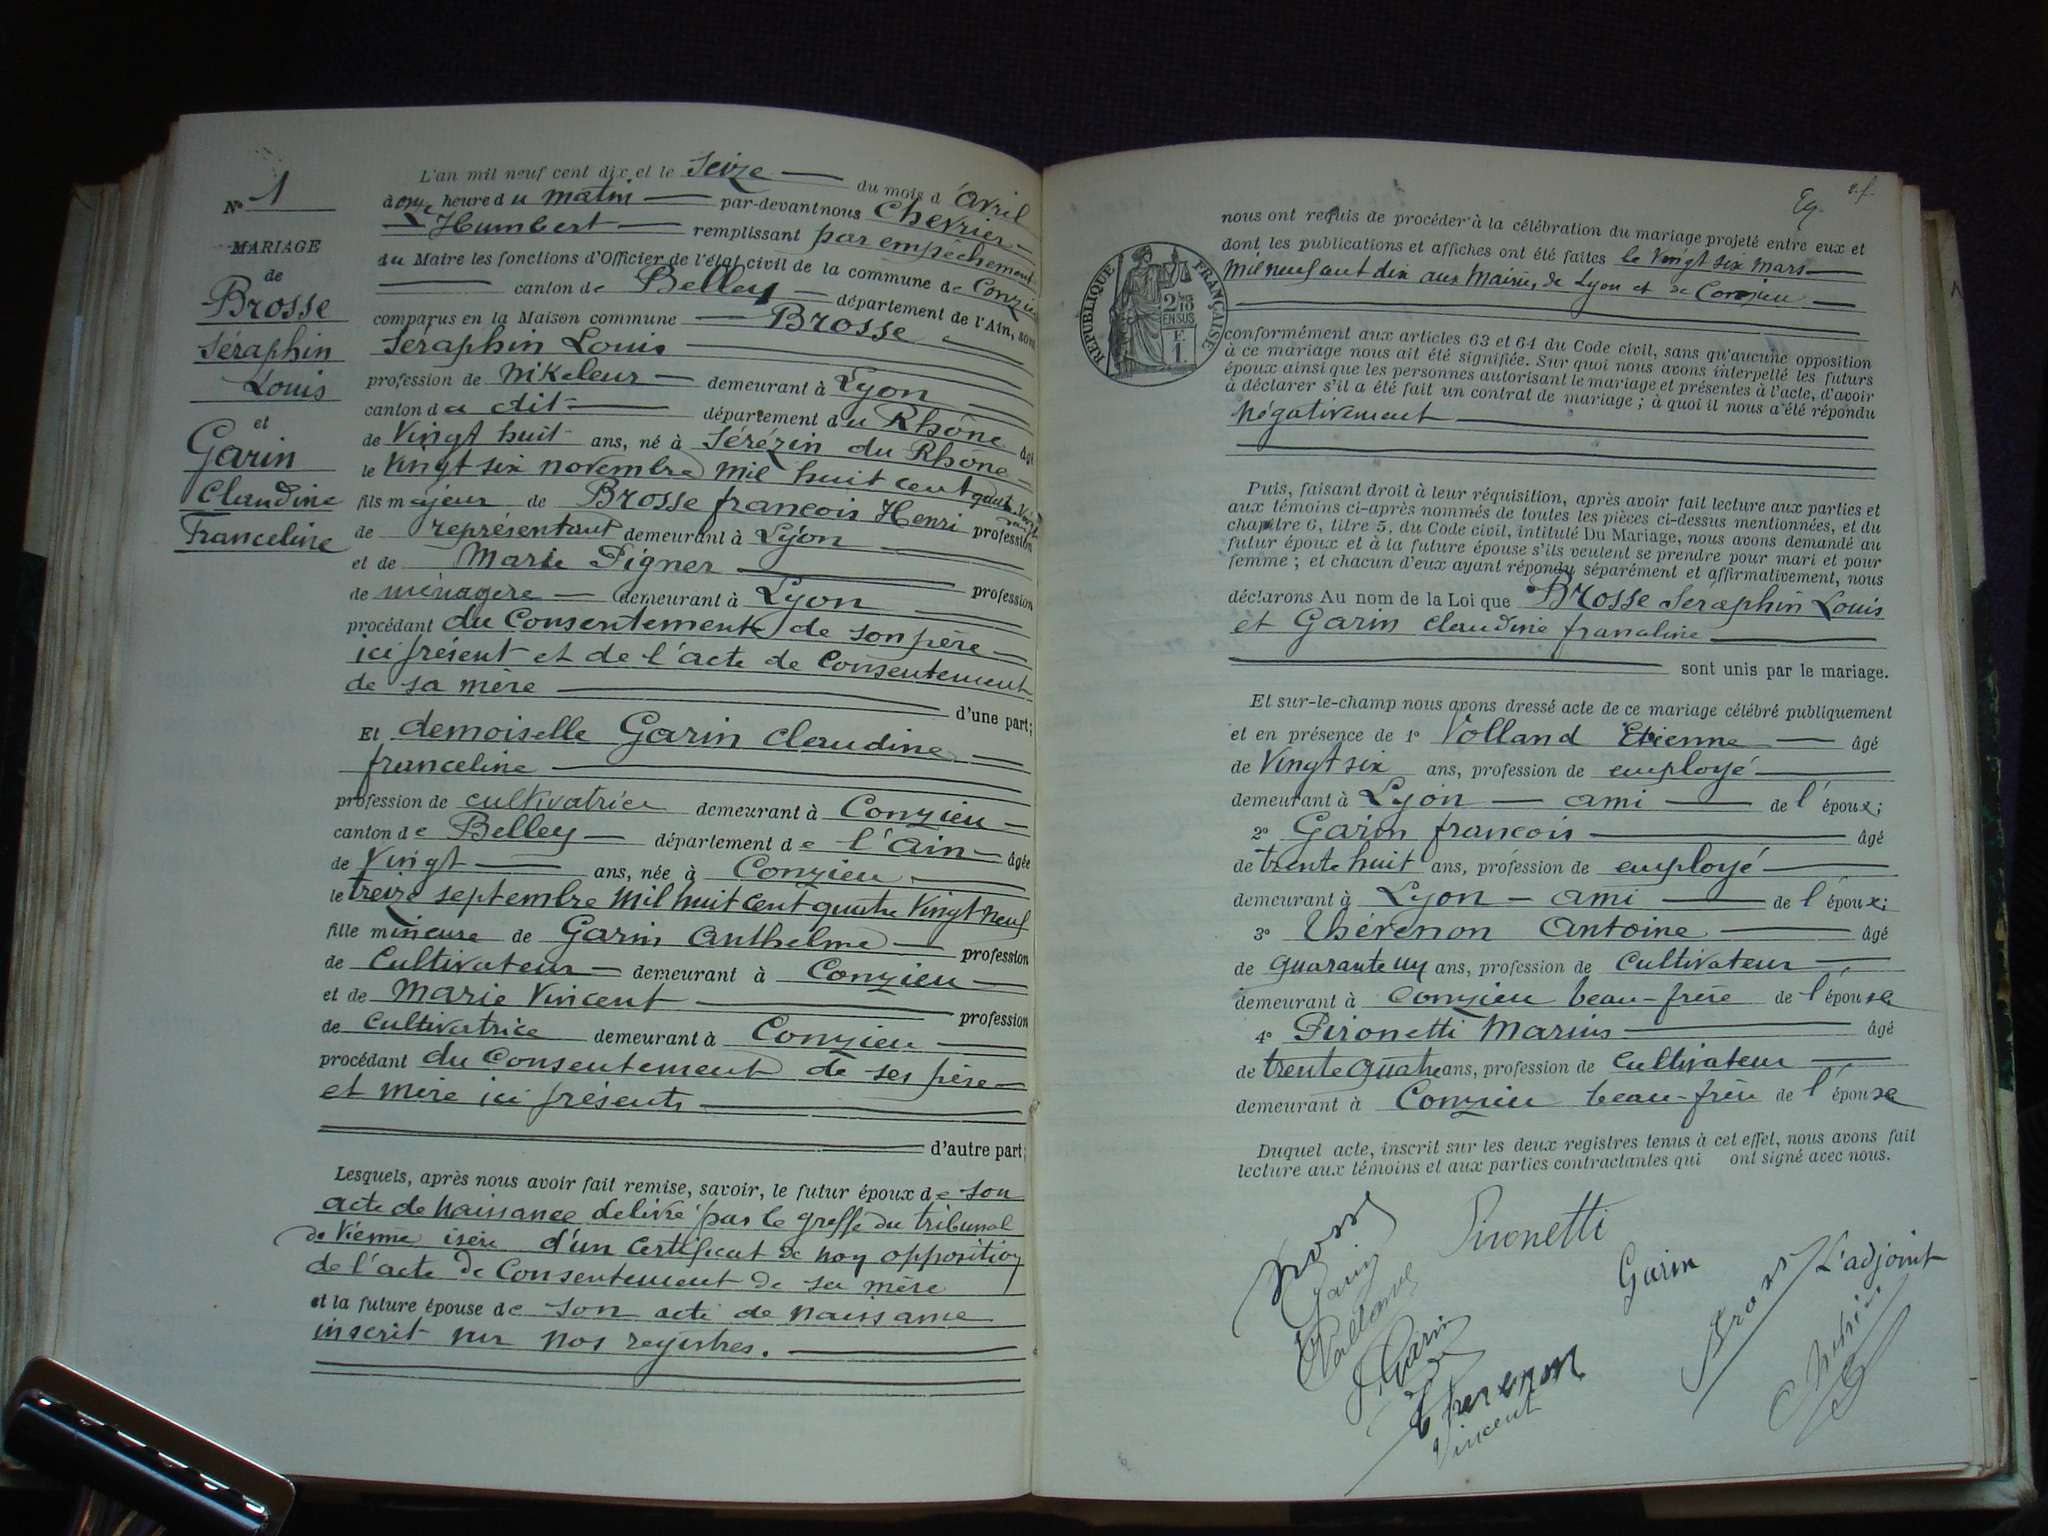 N° 1
MARIAGE
de
Brosse
Séraphin
Louis
et
Garin
Claudine
Franceline
L'an mil neuf cent dix et le Seize du mois d'Avril
à onze heure du matin par-devant nous Chevrier
Humbert remplissant par empêchement
du Maire les fonctions d'Officier de l'état civil de la commune de Conzieu
canton de Belley département de l'Ain, sont
comparus en la Maison commune Brosse
Séraphin Louis
profession de Nikeleur demeurant à Lyon
canton du dit département du Rhône âgé
de Vingt huit ans, né à Sérézin du Rhône
le Vingt six novembre mil huit cent quatre vingt un
fils majeur de Brosse françois Henri profession
de représentant demeurant à Lyon
et de Marie Pigner profession
de ménagère demeurant à Lyon
procédant du Consentement de son père
ici présent et de l'acte de Consentement
de sa mère
d'une part;
Et demoiselle Garin Claudine
franceline
profession de cultivatrice demeurant à Conzieu
canton de Belley département de l'Ain âgée
de Vingt ans, née à Conzieu
le treize septembre Mil huit cent quatre Vingt neuf
fille mineure de Garin Anthelme profession
de Cultivateur demeurant à Conzieu
et de Marie Vincent profession
de Cultivatrice demeurant à Conzieu
procédant du Consentement de ses père
et mère ici présents
d'autre part;
Lesquels, après nous avoir fait remise, savoir, le futur époux de son
acte de Naissance délivré par le greffe du tribunal
de Vienne isère d'un certificat de non opposition
de l'acte de Consentement de sa mère
et la future épouse de son acte de naissance
inscrit sur nos registres.
nous ont requis de procéder à la célébration du mariage projeté entre eux et
dont les publications et affiches ont été faites le vingt six mars
mil neuf cent dix aux Mairies de Lyon et de Conzieu
RÉPUBLIQUE FRANÇAISE
2/10
EN SUS
F.
1.
conformément aux articles 63 et 64 du Code civil, sans qu'aucune opposition
à ce mariage nous ait été signifiée. Sur quoi nous avons interpellé les futurs
époux ainsi que les personnes autorisant le mariage et présentes à l'acte, d'avoir
à déclarer s'il a été fait un contrat de mariage; à quoi il nous a été répondu
négativement
Puis, faisant droit à leur réquisition, après avoir fait lecture aux parties et
aux témoins ci-après nommés de toutes les pièces ci-dessus mentionnées, et du
chapitre 6, titre 5, du Code civil, intitulé Du Mariage, nous avons demandé au
futur époux et à la future épouse s'ils veulent se prendre pour mari et pour
femme; et chacun d'eux ayant répondu séparément et affirmativement, nous
déclarons Au nom de la Loi que Brosse Séraphin Louis
et Garin Claudine franceline
sont unis par le mariage.
Et sur-le-champ nous avons dressé acte de ce mariage célébré publiquement
et en présence de 1° Volland Etienne âgé
de Vingt six ans, profession de employé
demeurant à Lyon ami de l'époux;
2° Garin françois âgé
de trente huit ans, profession de employé
demeurant à Lyon ami de l'époux;
3° Thérenon Antoine âgé
de quarante un ans, profession de Cultivateur
demeurant à Conzieu beau-frère de l'épouse
4° Pironetti Marius âgé
de trente quatre ans, profession de Cultivateur
demeurant à Conzieu beau-frère de l'épouse
Duquel acte, inscrit sur les deux registres tenus à cet effet, nous avons fait
lecture aux témoins et aux parties contractantes qui ont signé avec nous.
Brosse
Pironetti
Garin
Garin
Volland
F. Garin
Therenon
Vincent
Brosse
L'adjoint